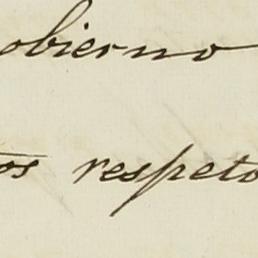 obierno
os respeto